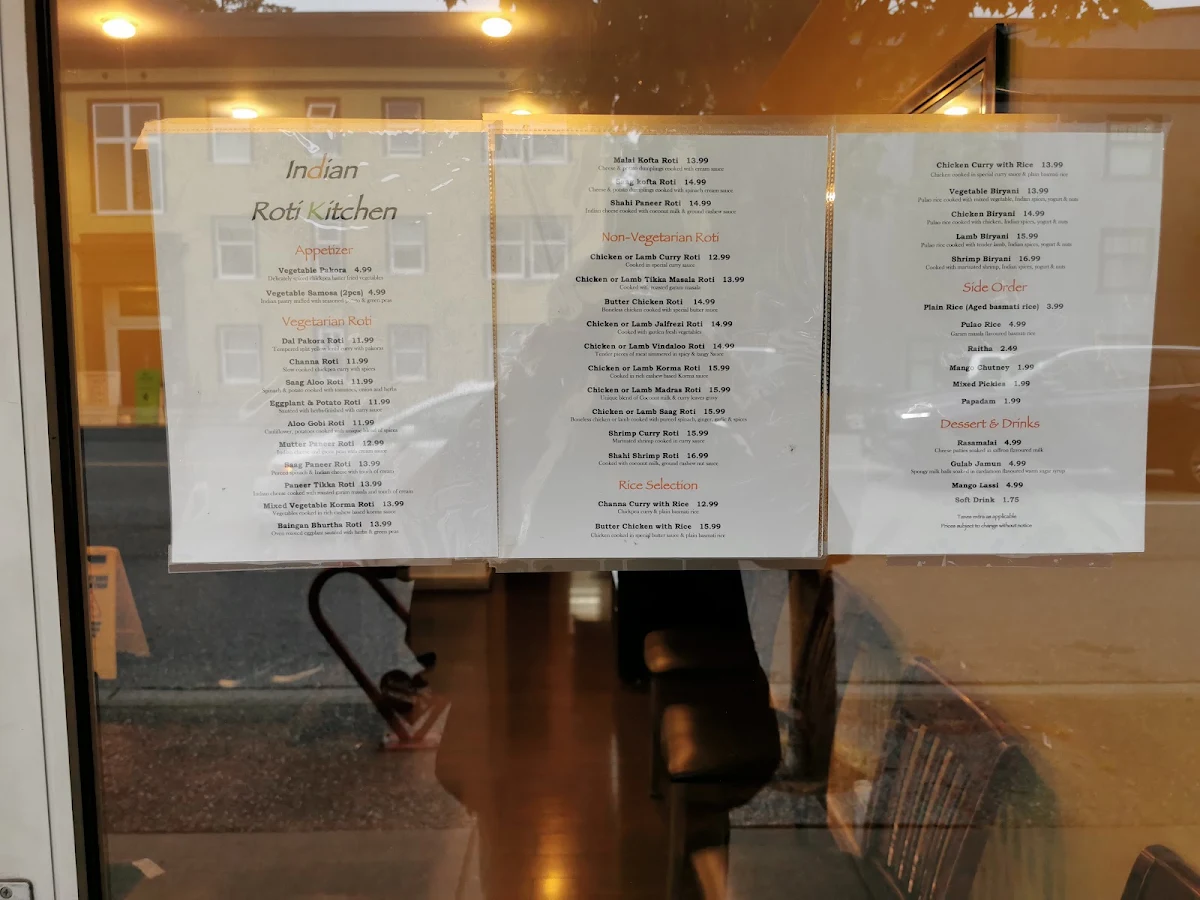 Indian
Roti Kitchen
Appetizer
Vegetable Pakora 4.99
Vegetable Samosa (2pcs) 4.99
Vegetarian Roti
Dal Pakora Roti 11.99
Channa Roti 11.99
Saag Aloo Roti 11.99
Eggplant & Potato Roti 11.99
Aloo Gobi Roti 11.99
Mutter Paneer Roti 12.99
Saag Paneer Roti 13.99
Paneer Tikka Roti 13.99
Mixed Vegetable Korma Roti 13.99
Vegetables cooked in rich cashew based korma sauce
Baingan Bhurtha Roti 13.99
Oven roasted eggplant sauteed with herbs & green peas
Malai Kofta Roti 13.99
Cheese & potato dumplings cooked with cream sauce
kofta Roti 14.99
Cheese & potato dumplings cooked with spinach cream sauce
Shahi Paneer Roti 14.99
Indian cheese cooked with coconut milk & ground cashew sauce
Non-Vegetarian Roti
Chicken or Lamb Curry Roti 12.99
Cooked in special curry sauce
Chicken or Lamb Tikka Masala Roti 13.99
Butter Chicken Roti 14.99
Boneless chicken cooked with special butter sauce
Chicken or Lamb Jalfrezi Roti 14.99
Cooked with garden fresh vegetables
Chicken or Lamb Vindaloo Roti 14.99
Tender pieces of meat simmered in spicy & tangy Sauce
Chicken or Lamb Korma Roti 15.99
Cooked in rich cashew based Korma sauce
Chicken or Lamb Madras Roti 15.99
Unique blend of Coconut milk & curry leaves gravy
Chicken or Lamb Saag Roti 15.99
Boneless chicken or lamb cooked with pureed spinach, ginger, garlic & spices
Shrimp Curry Roti 15.99
Marinated shrimp cooked in curry sauce
Shahi Shrimp Roti 16.99
Cooked with coconut milk, ground cashew nut sauce
Rice Selection
Channa Curry with Rice 12.99
Chickpea curry & plain basmati rice
Butter Chicken with Rice 15.99
Chicken cooked in special butter sauce & plain basmati rice
Chicken Curry with Rice 13.99
Chicken cooked in special curry sauce & plain basmati rice
Vegetable Biryani 13.99
Pulao rice cooked with mixed vegetable, Indian spices, yogurt & nuts
Chicken Biryani 14.99
Pulao rice cooked with chicken, Indian spices, yogurt & nuts
Lamb Biryani 15.99
Pulao rice cooked with tender lamb, Indian spices, yogurt & nuts
Shrimp Biryani 16.99
Cooked with marinated shrimp, Indian spices, yogurt & nuts
Side Order
Plain Rice (Aged basmati rice) 3.99
Pulao Rice 4.99
Garam masala flavoured basmati rice
Raitha 2.49
Mango Chutney 1.99
Mixed Pickles 1.99
Papadam 1.99
Dessert & Drinks
Rasamalai 4.99
Cheese patties soaked in saffron flavoured milk
Gulab Jamun 4.99
Spongy milk balls soaked in cardamom flavoured warm sugar syrup
Mango Lassi 4.99
Soft Drink 1.75
Taxes extra as applicable
Prices subject to change without notice